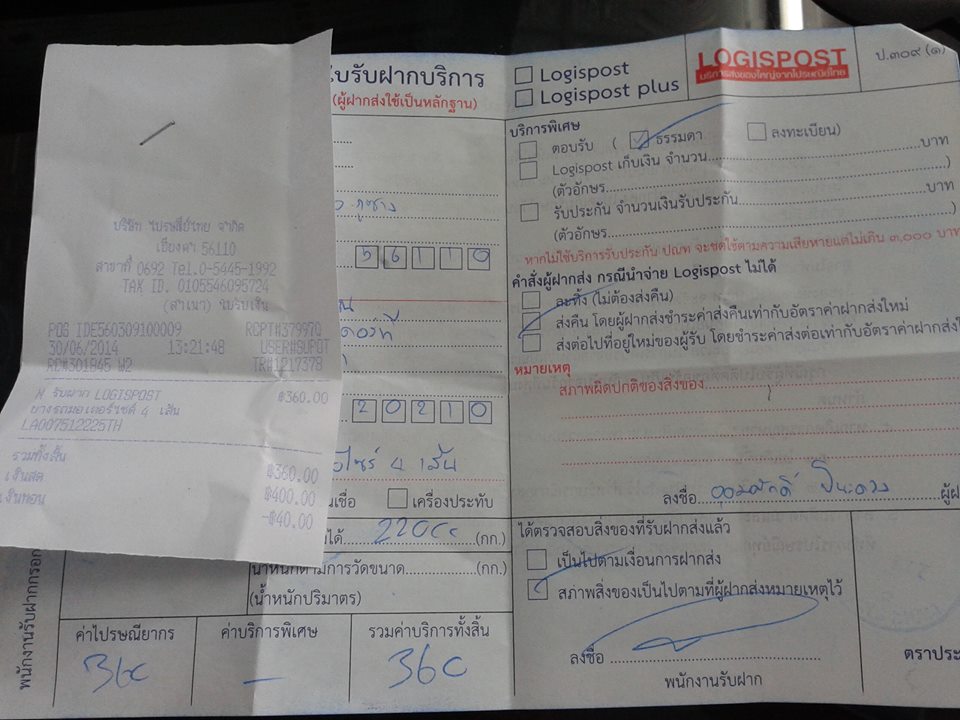 บริษัท ไปรษณีย์ไทย จำกัด
เชียงคำ 56110
สาขาที่ 0692 Tel.0-5445-1992
TAX ID. 0105546095724
(สำเนา) ใบรับเงิน
POS IDE560309100009 RCPT#379970
30/06/2014 13:21:48 USER#SUPOT
RD#301845 W2 TR#1217378
N รับฝาก LOGISPOST ฿360.00
ยางรถมอเตอร์ไซค์ 4 เส้น
LA007512225TH
รวมทั้งสิ้น ฿360.00
เงินสด ฿400.00
เงินทอน -฿40.00
รับฝากบริการ
(ผู้ฝากส่งใช้เป็นหลักฐาน)
56110
20210
ไซร์ 4 เส้น
เครื่องประทับ
220cc (กก.)
น้ำหนักตามการวัดขนาด (กก.)
(น้ำหนักปริมาตร)
พนักงานรับฝากกรอก
ค่าไปรษณียากร ค่าบริการพิเศษ รวมค่าบริการทั้งสิ้น
360 – 360
Logispost
Logispost plus
LOGISPOST
บริการส่งของใหญ่จากไปรษณีย์ไทย
ป.๓๐๙ (๑)
บริการพิเศษ
ตอบรับ ( ธรรมดา ลงทะเบียน)
Logispost เก็บเงิน จำนวน บาท
(ตัวอักษร )
รับประกัน จำนวนเงินรับประกัน บาท
(ตัวอักษร )
หากไม่ใช้บริการรับประกัน ปณท จะชดใช้ตามความเสียหายแต่ไม่เกิน ๓,๐๐๐ บาท
คำสั่งผู้ฝากส่ง กรณีนำจ่าย Logispost ไม่ได้
ละทิ้ง (ไม่ต้องส่งคืน)
ส่งคืน โดยผู้ฝากส่งชำระค่าส่งคืนเท่ากับอัตราค่าฝากส่งใหม่
ส่งต่อไปที่อยู่ใหม่ของผู้รับ โดยชำระค่าส่งต่อเท่ากับอัตราค่าฝากส่งใ
หมายเหตุ
สภาพผิดปกติของสิ่งของ
ลงชื่อ ผู้ฝ
ได้ตรวจสอบสิ่งของที่รับฝากส่งแล้ว
เป็นไปตามเงื่อนการฝากส่ง
สภาพสิ่งของเป็นไปตามที่ผู้ฝากส่งหมายเหตุไว้
ลงชื่อ
พนักงานรับฝาก
ตราประ